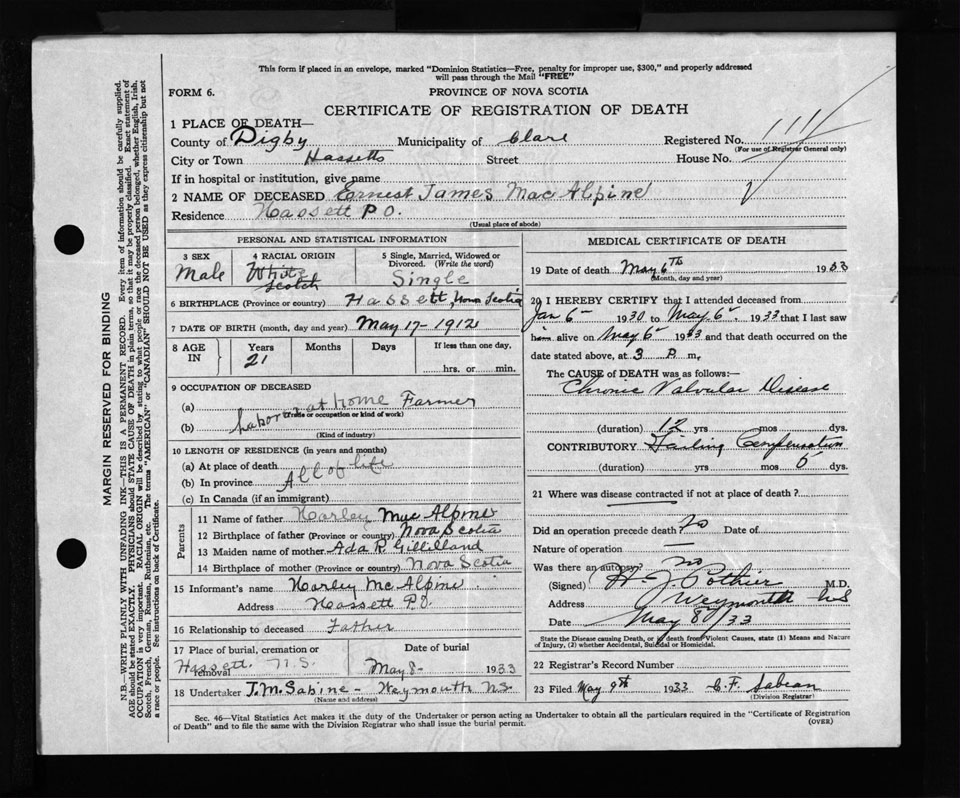 This form if placed in an envelope, marked "Dominion Statistics—Free, penalty for improper use, $300," and properly addressed
will pass through the Mail "FREE"
FORM 6.
PROVINCE OF NOVA SCOTIA
CERTIFICATE OF REGISTRATION OF DEATH
1 PLACE OF DEATH—
County of Digby Municipality of Clare Registered No.
(For use of Registrar General only)
City or Town Hassetts Street House No.
If in hospital or institution, give name
2 NAME OF DECEASED Ernest James Mac Alpine
Residence Hassett P O.
(Usual place of abode)
PERSONAL AND STATISTICAL INFORMATION
3 SEX 4 RACIAL ORIGIN 5 Single, Married, Widowed or Divorced. (Write the word)
Male White Scotch Single
6 BIRTHPLACE (Province or country) Hassett, Nova Scotia
7 DATE OF BIRTH (month, day and year) May 17 - 1912
8 AGE IN Years Months Days If less than one day,
21 hrs. or min.
9 OCCUPATION OF DECEASED
(a) Labor at home Farmer
(Trade or occupation or kind of work)
(b)
(Kind of industry)
10 LENGTH OF RESIDENCE (in years and months)
(a) At place of death
(b) In province All of life
(c) In Canada (if an immigrant)
Parents
11 Name of father Harley Mac Alpine
12 Birthplace of father (Province or country) Nova Scotia
13 Maiden name of mother Ada R Gillilland
14 Birthplace of mother (Province or country) Nova Scotia
15 Informant's name Harley Mc Alpine
Address Hassett P.O.
16 Relationship to deceased Father
17 Place of burial, cremation or removal Date of burial
Hassett. N.S. May 8 - 1933
18 Undertaker J.M. Sabine - Weymouth NS
(Name and address)
MEDICAL CERTIFICATE OF DEATH
19 Date of death May 6th 1933
(Month, day and year)
20 I HEREBY CERTIFY that I attended deceased from
Jan 6 1930 to May 6 1933 that I last saw
him alive on May 6 1933 and that death occurred on the
date stated above, at 3 P. m.
The CAUSE of DEATH was as follows:—
Chronic Valvular Disease
(duration) 12 yrs mos dys.
CONTRIBUTORY Failing Compensation
(duration) yrs mos 5 dys.
21 Where was disease contracted if not at place of death?
Did an operation precede death? No Date of
Nature of operation —
Was there an autopsy? no
(Signed) H J Pothier M.D.
Address Weymouth NS
Date May 8/33
State the Disease causing Death, or if death from Violent Causes, state (1) Means and Nature
of Injury, (2) whether Accidental, Suicidal or Homicidal.
22 Registrar's Record Number
23 Filed May 9th 1933 C.F. Sabean
(Division Registrar)
Sec. 46—Vital Statistics Act makes it the duty of the Undertaker or person acting as Undertaker to obtain all the particulars required in the "Certificate of Registration
of Death" and to file the same with the Division Registrar who shall issue the burial permit.
(OVER)
MARGIN RESERVED FOR BINDING
N.B.—WRITE PLAINLY WITH UNFADING INK—THIS IS A PERMANENT RECORD. Every item of information should be carefully supplied.
AGE should be stated EXACTLY. PHYSICIANS should STATE CAUSE OF DEATH in plain terms, so that it may be properly classified. Exact statement of
OCCUPATION is very important. RACIAL ORIGIN will be described by stating to what people or race the deceased person belonged, whether English, Irish,
Scotch, French, German, Russian, Ruthenian, etc. The terms "AMERICAN" or "CANADIAN" SHOULD NOT BE USED as they express citizenship but not
a race or people. See instructions on back of Certificate.